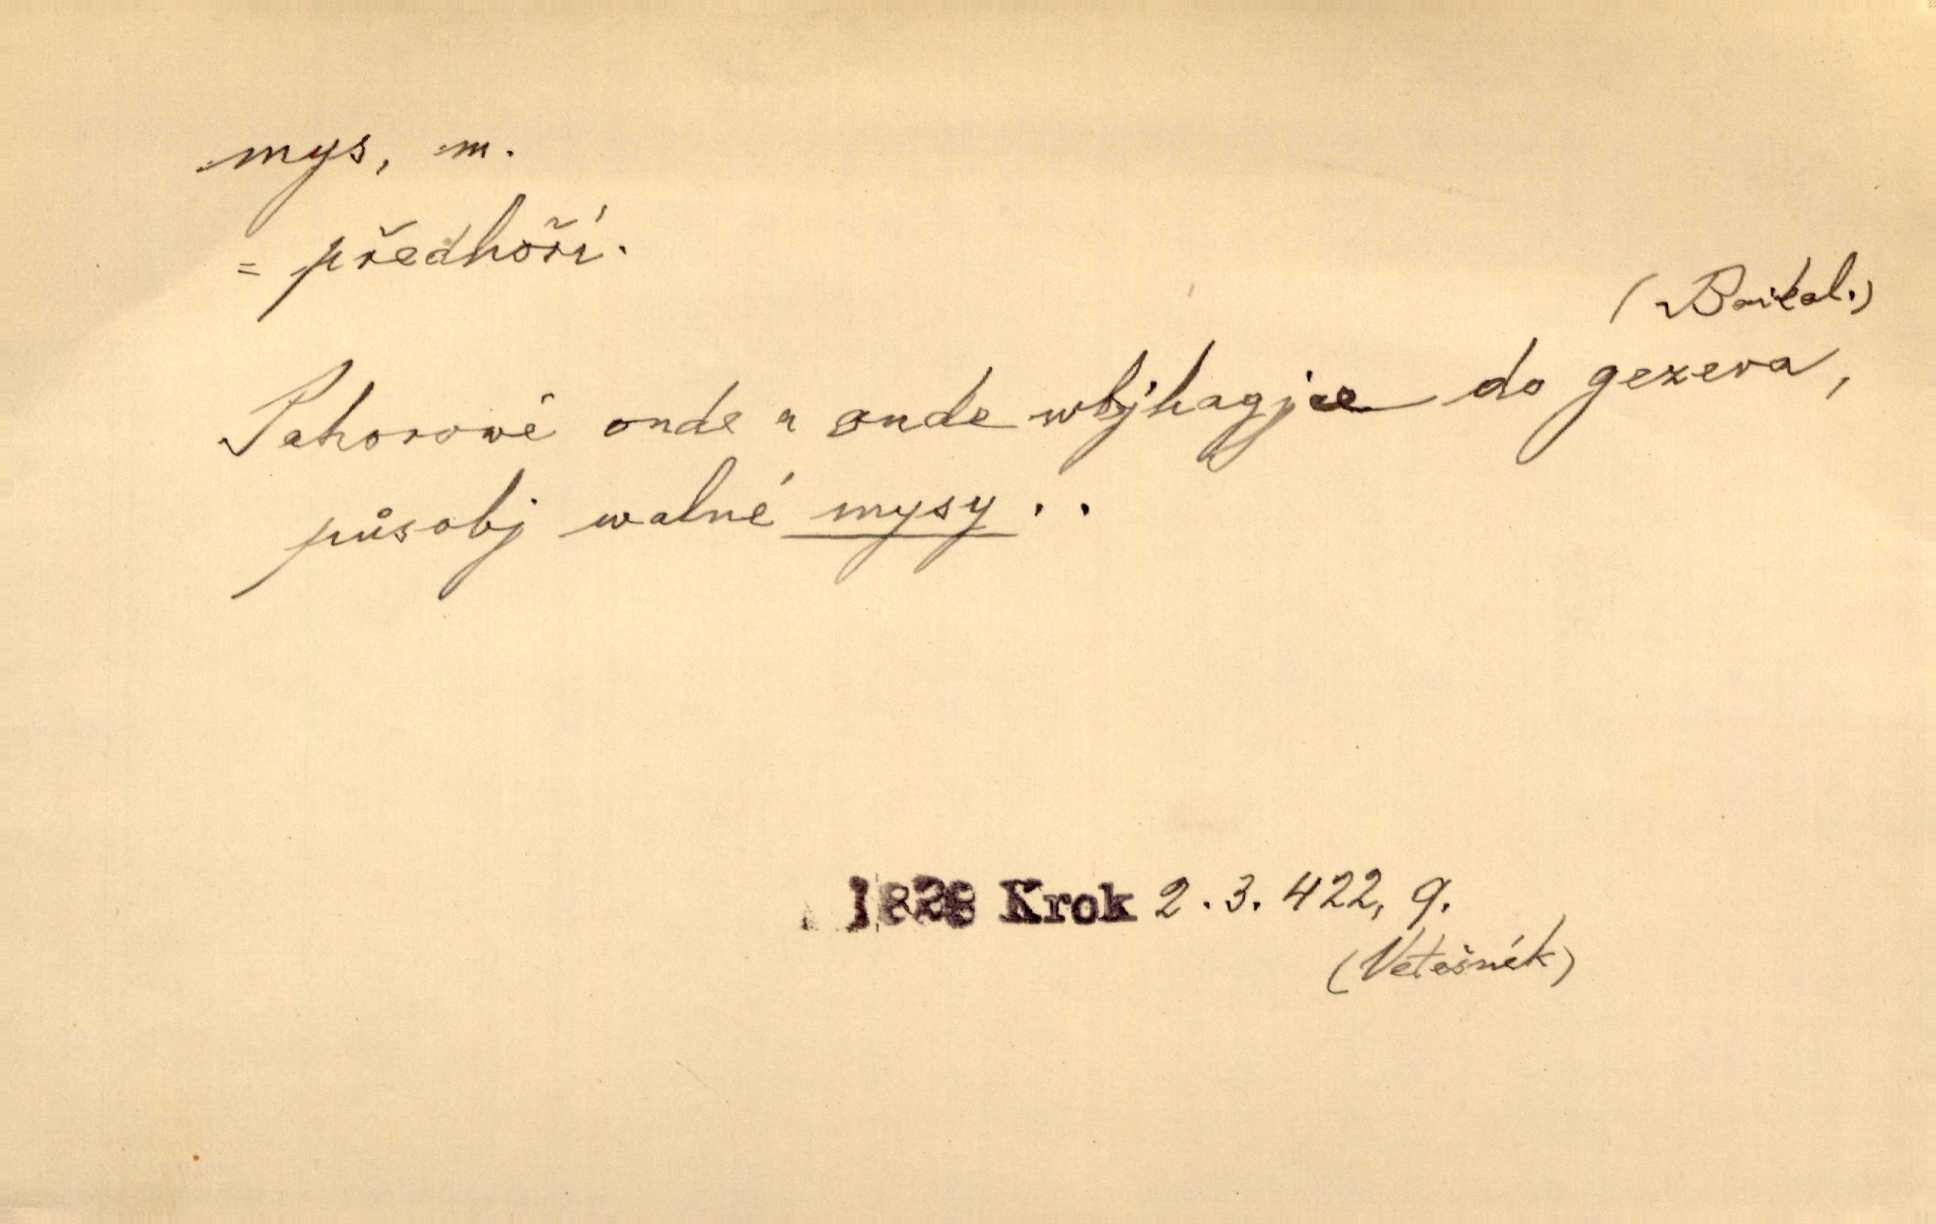 mys, m.
= předhoří.
(Baikal.)
Pahorowé onde a onde wbjhagjce do gezera,
působj walné mysy . .
1828 Krok 2. 3. 422, 9.
(Vetešník)